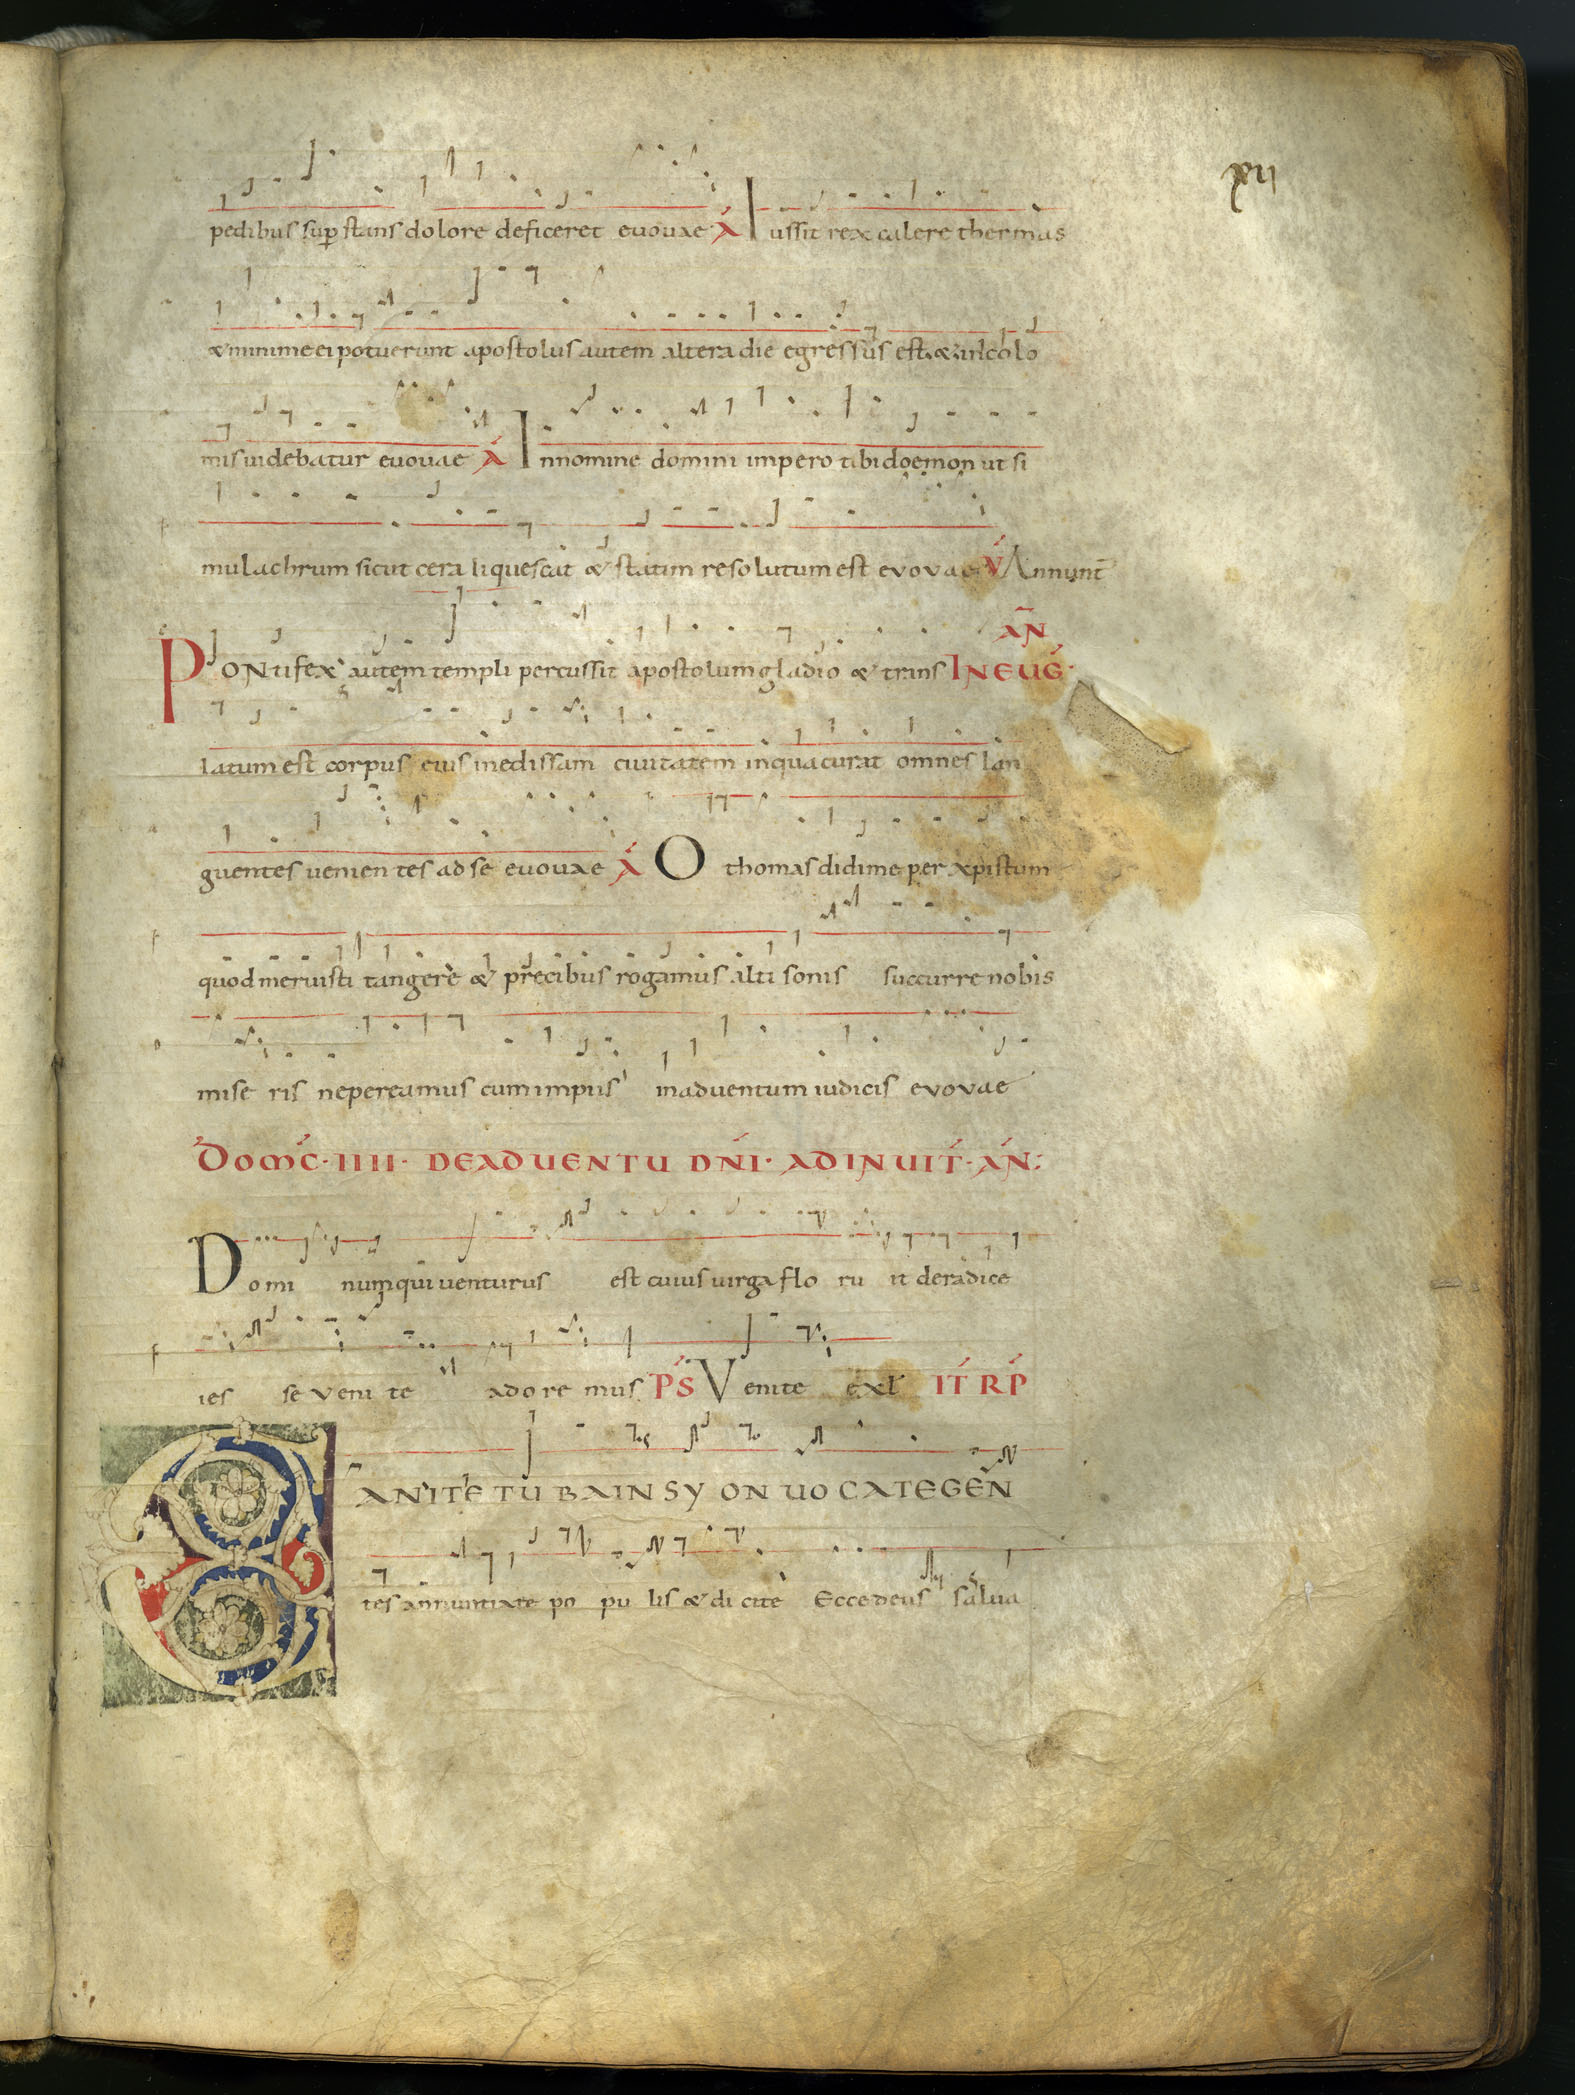 xii
pedibus sup stans dolore deficeret euouae A Iussit rex calere thermas
& minime ei potuerunt apostolus autem altera die egressus est & incolo
mis uidebatur euouae A In nomine domini impero tibi doemon ut si
mulachrum sicut cera liquescat & statim resolutum est evovae V Annunt
AN
Pontifex autem templi percussit apostolum gladio & trans IN EUG
latum est corpus eius in edissam ciuitatem in qua curat omnes lan
guentes venientes ad se euouae A O thomas didime per xpistum
quod meruisti tangere & precibus rogamus alti sonis succurre nobis
mise ris ne pereamus cum impiis in aduentum iudicis evovae
DOMC · IIII · DE ADUENTU DNI · AD INUIT · AN
Domi num qui uenturus est cuius uirga flo ru it de radice
ies se veni te adore mus PS Venite exl IT RP
CANITE TUBA IN SYON UOCATE GEN
tes annuntiate po pu lis & di cite Ecce deus salua